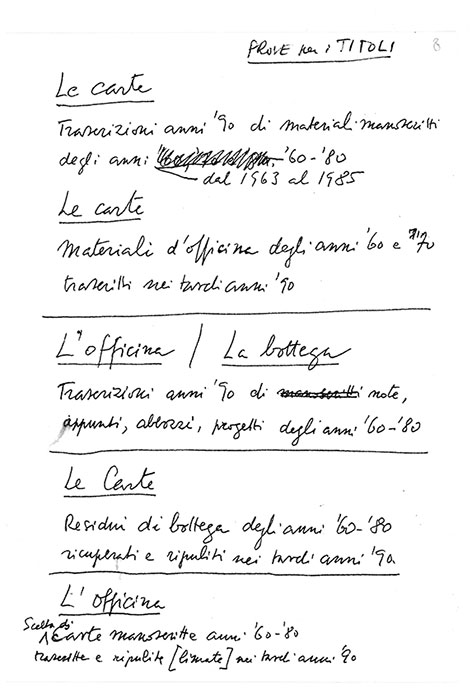 PROVE per i TITOLI 8
Le carte
Trascrizioni anni '90 di materiali manoscritti
degli anni '60-'80
dal 1963 al 1985
Le carte
Materiali d'officina degli anni '60 e '70
trascritti nei tardi anni '90
L'officina / La bottega
Trascrizioni anni '90 di manoscritti note,
appunti, abbozzi, progetti degli anni '60-'80
Le Carte
Residui di bottega degli anni '60-'80
ricuperati e ripuliti nei tardi anni '90
L'officina
Scelta di
Carte manoscritte anni '60-'80
trascritte e ripulite [limate] nei tardi anni '90